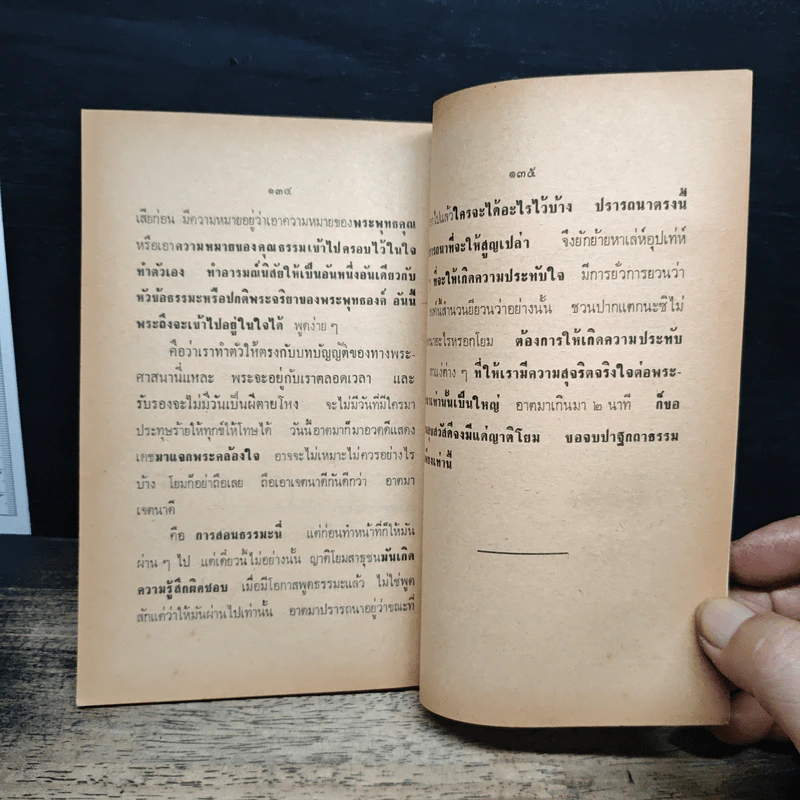 ๑๓๔
เสียก่อน มีความหมายอยู่ว่าเอาความหมายของพระพุทธคุณ
หรือเอาความหมายของคุณธรรมเข้าไปครอบไว้ในใจ
ทำตัวเอง ทำอารมณ์นิสัยให้เป็นอันหนึ่งอันเดียวกับ
หัวข้อธรรมะหรือปกติพระจริยาของพระพุทธองค์ อันนี้
พระถึงจะเข้าไปอยู่ในใจได้ พูดง่าย ๆ
คือว่าเราทำตัวให้ตรงกับบทบัญญัติของทางพระ-
ศาสนานี่แหละ พระจะอยู่กับเราตลอดเวลา และ
รับรองจะไม่มีวันเป็นผีตายโหง จะไม่มีวันที่มีใครมา
ประทุษร้ายให้ทุกข์ให้โทษได้ วันนี้อาตมาก็มาอวดดีแสดง
เดชมาแจกพระคล้องใจ อาจจะไม่เหมาะไม่ควรอย่างไร
บ้าง โยมก็อย่าถือเลย ถือเอาเจตนาดีกันดีกว่า อาตมา
เจตนาดี
คือ การสอนธรรมะนี่ แต่ก่อนทำหน้าที่ก็ให้มัน
ผ่าน ๆ ไป แต่เดี๋ยวนี้ไม่อย่างนั้น ญาติโยมสาธุชนมันเกิด
ความรู้สึกผิดชอบ เมื่อมีโอกาสพูดธรรมะแล้ว ไม่ใช่พูด
สักแต่ว่าให้มันผ่านไปเท่านั้น อาตมาปรารถนาอยู่ว่าขณะที่
๑๓๕
ไปแล้วใครจะได้อะไรไว้บ้าง ปรารถนาตรงนี้
ที่จะให้สูญเปล่า จึงยักย้ายหาเล่ห์อุปเท่ห์
ๆ ที่จะให้เกิดความประทับใจ มีการยั่วการยวนว่า
สำนวนยียวนว่าอย่างนั้น ชวนปากแตกนะซิไม่
อะไรหรอกโยม ต้องการให้เกิดความประทับ
ต่าง ๆ ที่ให้เรามีความสุจริตจริงใจต่อพระ-
เท่านั้นเป็นใหญ่ อาตมาเกินมา ๒ นาที ก็ขอ
สวัสดีจงมีแด่ญาติโยม ขอจบปาฐกถาธรรม
เท่านี้